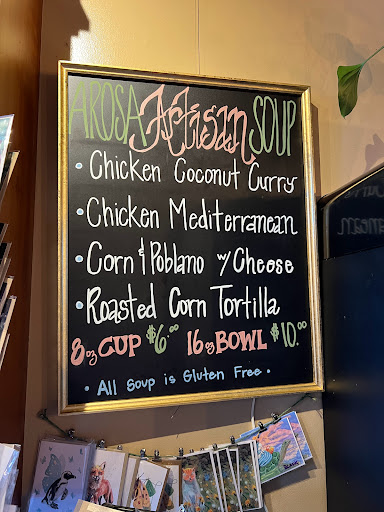 AROSA Artisan SOUP
• Chicken Coconut Curry
• Chicken Mediterranean
• Corn & Poblano w/ Cheese
• Roasted Corn Tortilla
8oz CUP $6.00 16oz BOWL $10.00
• All Soup is Gluten Free •